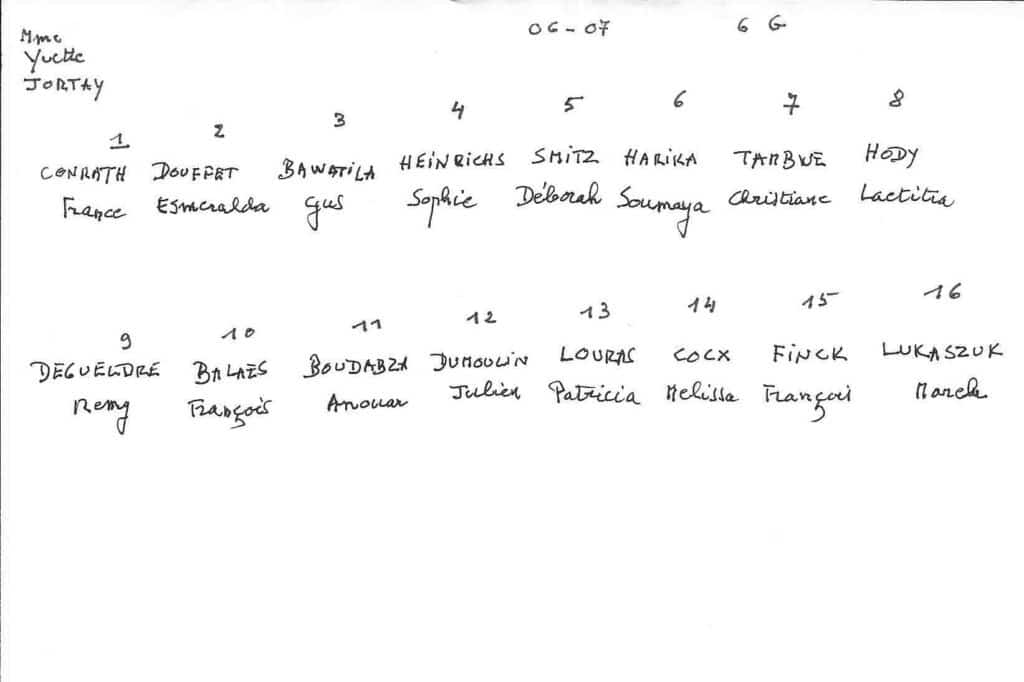 Mme 06-07 6 G
Yvette
JORTAY
1 2 3 4 5 6 7 8
CONRATH DOUFFET BAWATILA HEINRICHS SMITZ HARIKA TAMBWE HODY
France Esmeralda Gus Sophie Déborah Soumaya Christiane Laetitia
9 10 11 12 13 14 15 16
DEGUELDRE BALAES BOUDABZA DUMOULIN LOURAS COCX FINCK LUKASZUK
Remy François Anouar Julien Patricia Melissa François